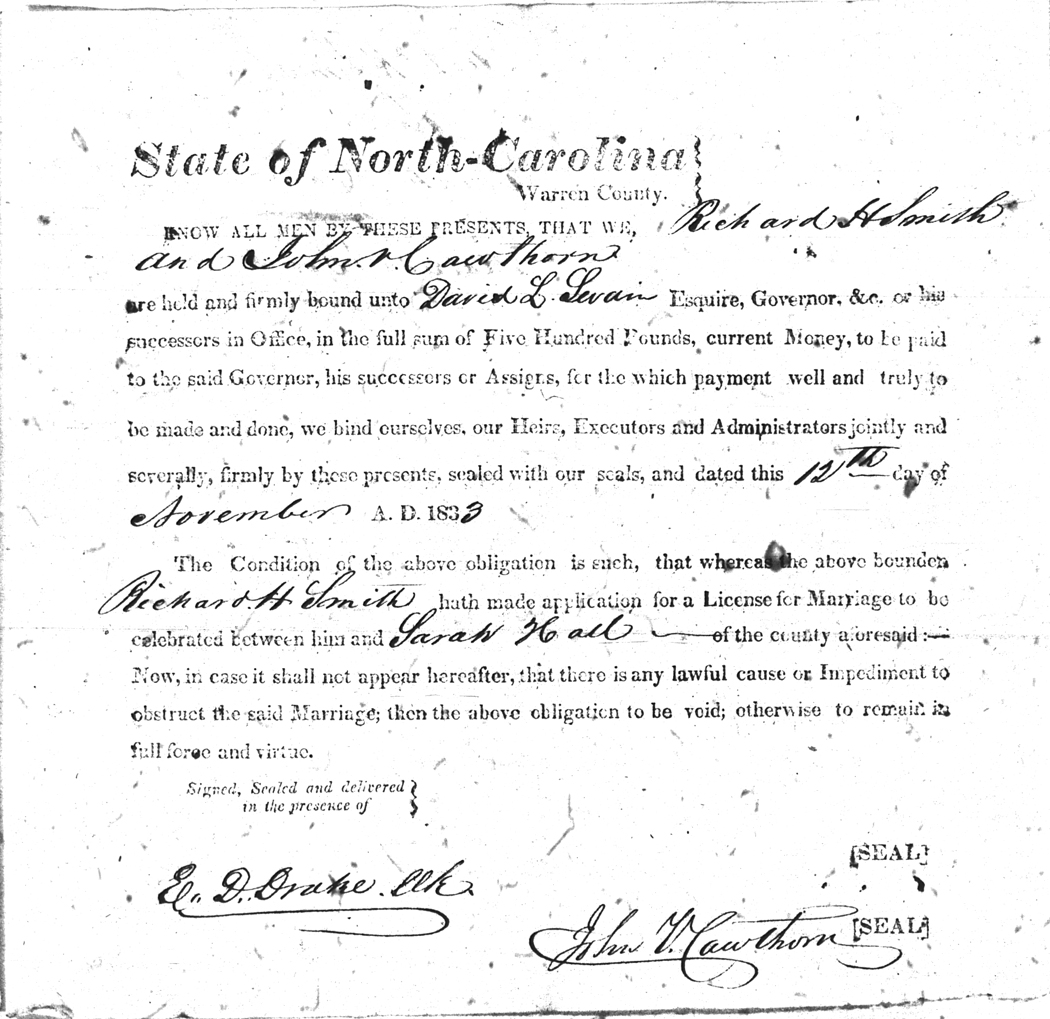 State of North-Carolina
Warren County.
KNOW ALL MEN BY THESE PRESENTS, THAT WE, Richard H Smith
and John V. Cawthorn
are held and firmly bound unto David L. Swain Esquire, Governor, &c. or his
successors in Office, in the full sum of Five Hundred Pounds, current Money, to be paid
to the said Governor, his successors or Assigns, for the which payment well and truly to
be made and done, we bind ourselves, our Heirs, Executors and Administrators jointly and
severally, firmly by these presents, sealed with our seals, and dated this 12th day of
November A. D. 1833
The Condition of the above obligation is such, that whereas the above bounden
Richard H Smith hath made application for a License for Marriage to be
celebrated between him and Sarah Hall of the county aforesaid:—
Now, in case it shall not appear hereafter, that there is any lawful cause or Impediment to
obstruct the said Marriage; then the above obligation to be void; otherwise to remain in
full force and virtue.
Signed, Sealed and delivered
in the presence of
[SEAL]
E. D. Drake. Clk.
John V. Cawthorn [SEAL]